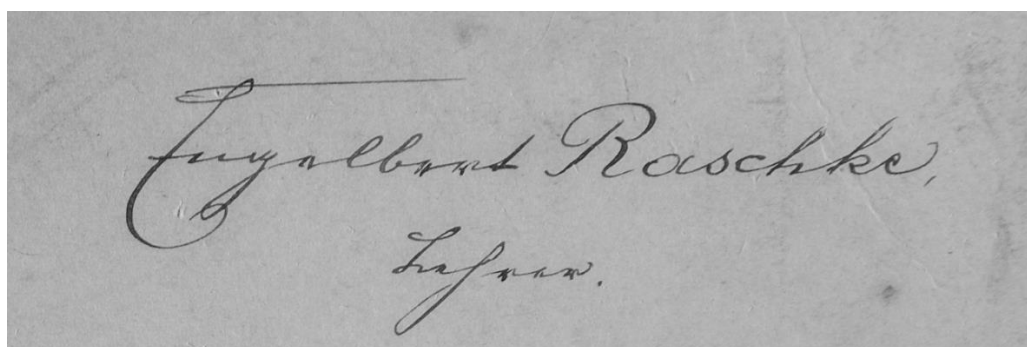 Engelbert Raschke,
Lehrer.